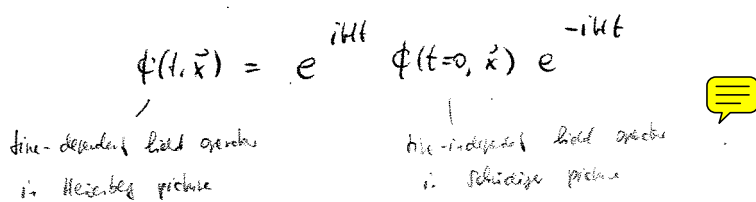 ϕ(t, x⃗) = e^{iHt} ϕ(t=0, x⃗) e^{-iHt}
time-dependent field operator
in Heisenberg picture
time-independent field operator
in Schrödinger picture